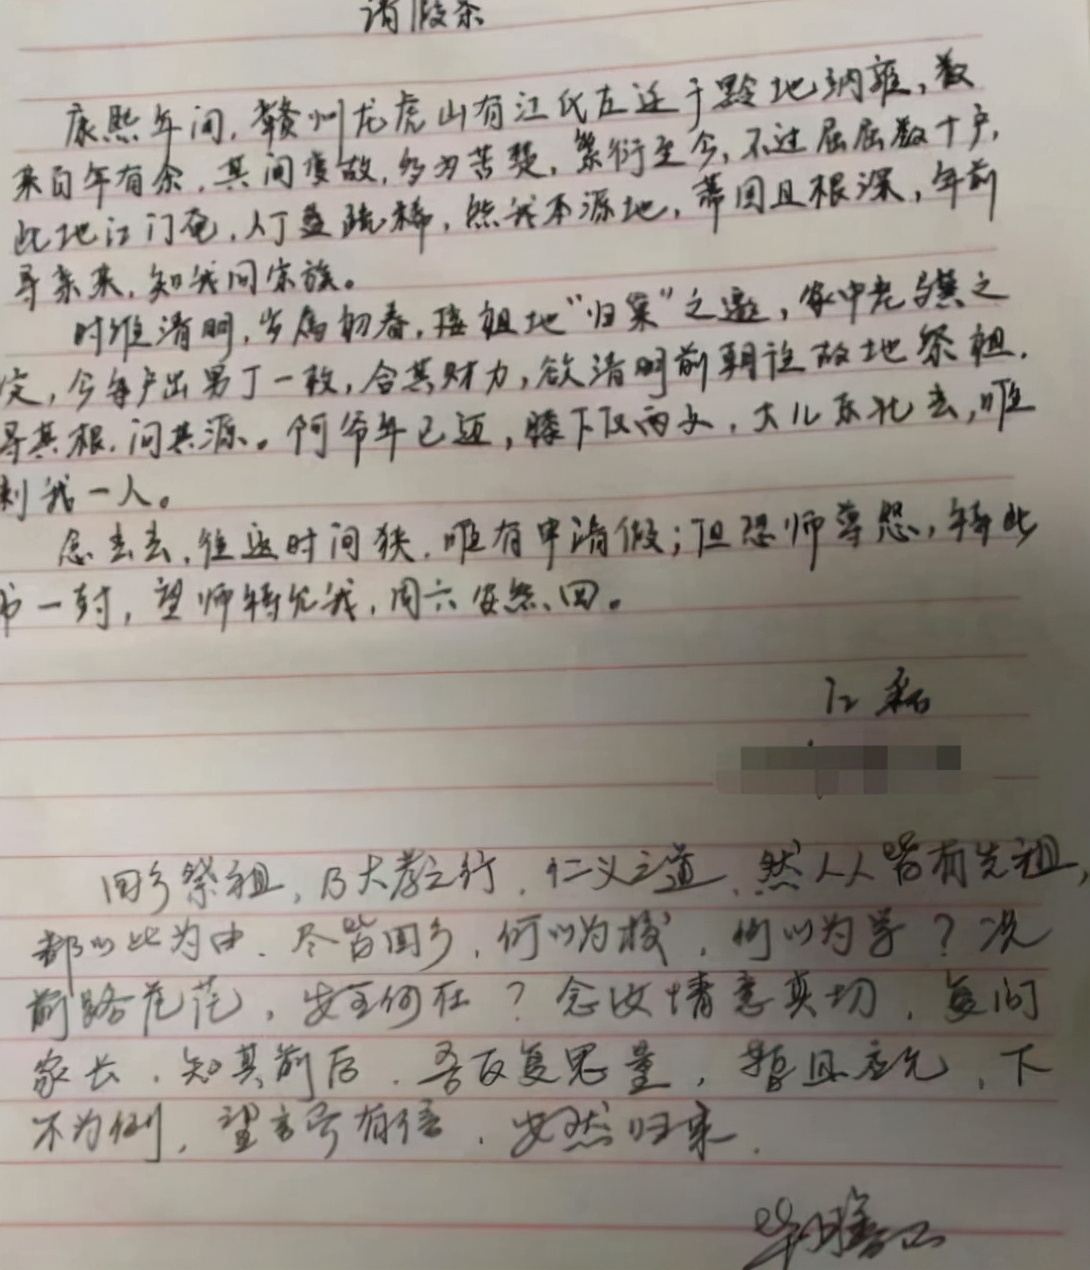 请假条
康熙年间,赣州龙虎山有江氏左迁于黔地纳雍,数
来百年有余,其间变故,多为苦楚,繁衍至今,不过屈屈数十户,
此地江门奄,人丁益疏稀,然我本源地,蒂固且根深,年前
寻亲来,知我同宗族。
时维清明,岁属初春,接祖地“归案”之邀,家中老与冀之
定,令每户出男丁一枚,合其财力,欲清明前朝往故地祭祖,
寻其根,问其源。阿爷年已迈,膝下仅两女,大儿东北去,唯
剩我一人。
念去去,往返时间狭,唯有申请假;但恐师尊怒,特此
书一封,望师特允我,周六安然回。
江
回乡祭祖,乃大孝之行,仁义之道,然人人皆有先祖,
都以此为由,尽皆回乡,何以为校,何以为学?况
前路茫茫,安全何在?念汝情意真切,复问
家长,知其前后,吾反复思量,暂且应允,下
不为例,望言号有信,安然归来.